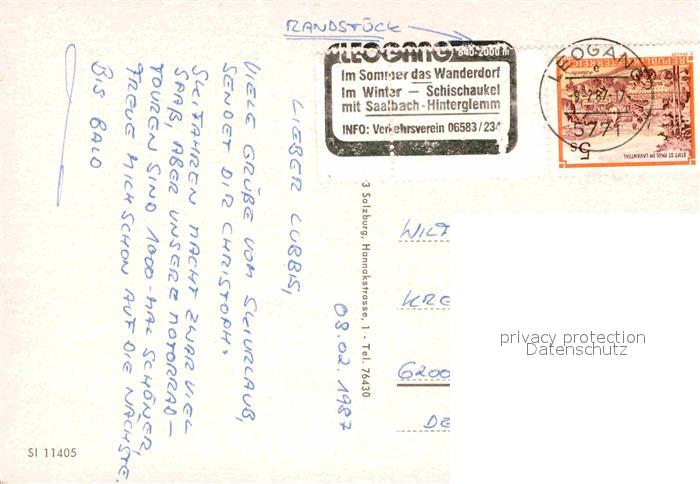 RANDSTÜCK
LEOGANG 840-2000 m
Im Sommer das Wanderdorf
Im Winter – Schischaukel
mit Saalbach-Hinterglemm
INFO: Verkehrsverein 06583/234
LEOGANG
5771
REPUBLIK ÖSTERREICH
5 S
STIFT ST. PAUL IM LAVANTTAL
08.02.1987
LIEBER LUBBIS,
VIELE GRÜßE VOM SKIURLAUB,
SENDET DIR CHRISTOPH.
SKIFAHREN MACHT ZWAR VIEL
SPAß, ABER UNSERE MOTORRAD-
TOUREN SIND 1000-MAL SCHÖNER,
FREUE MICH SCHON AUF DIE NÄCHSTE.
BIS BALD
3 Salzburg, Hannakstrasse, 1 - Tel. 76430
WILT
KRE
6200
DE
privacy protection
Datenschutz
SI 11405